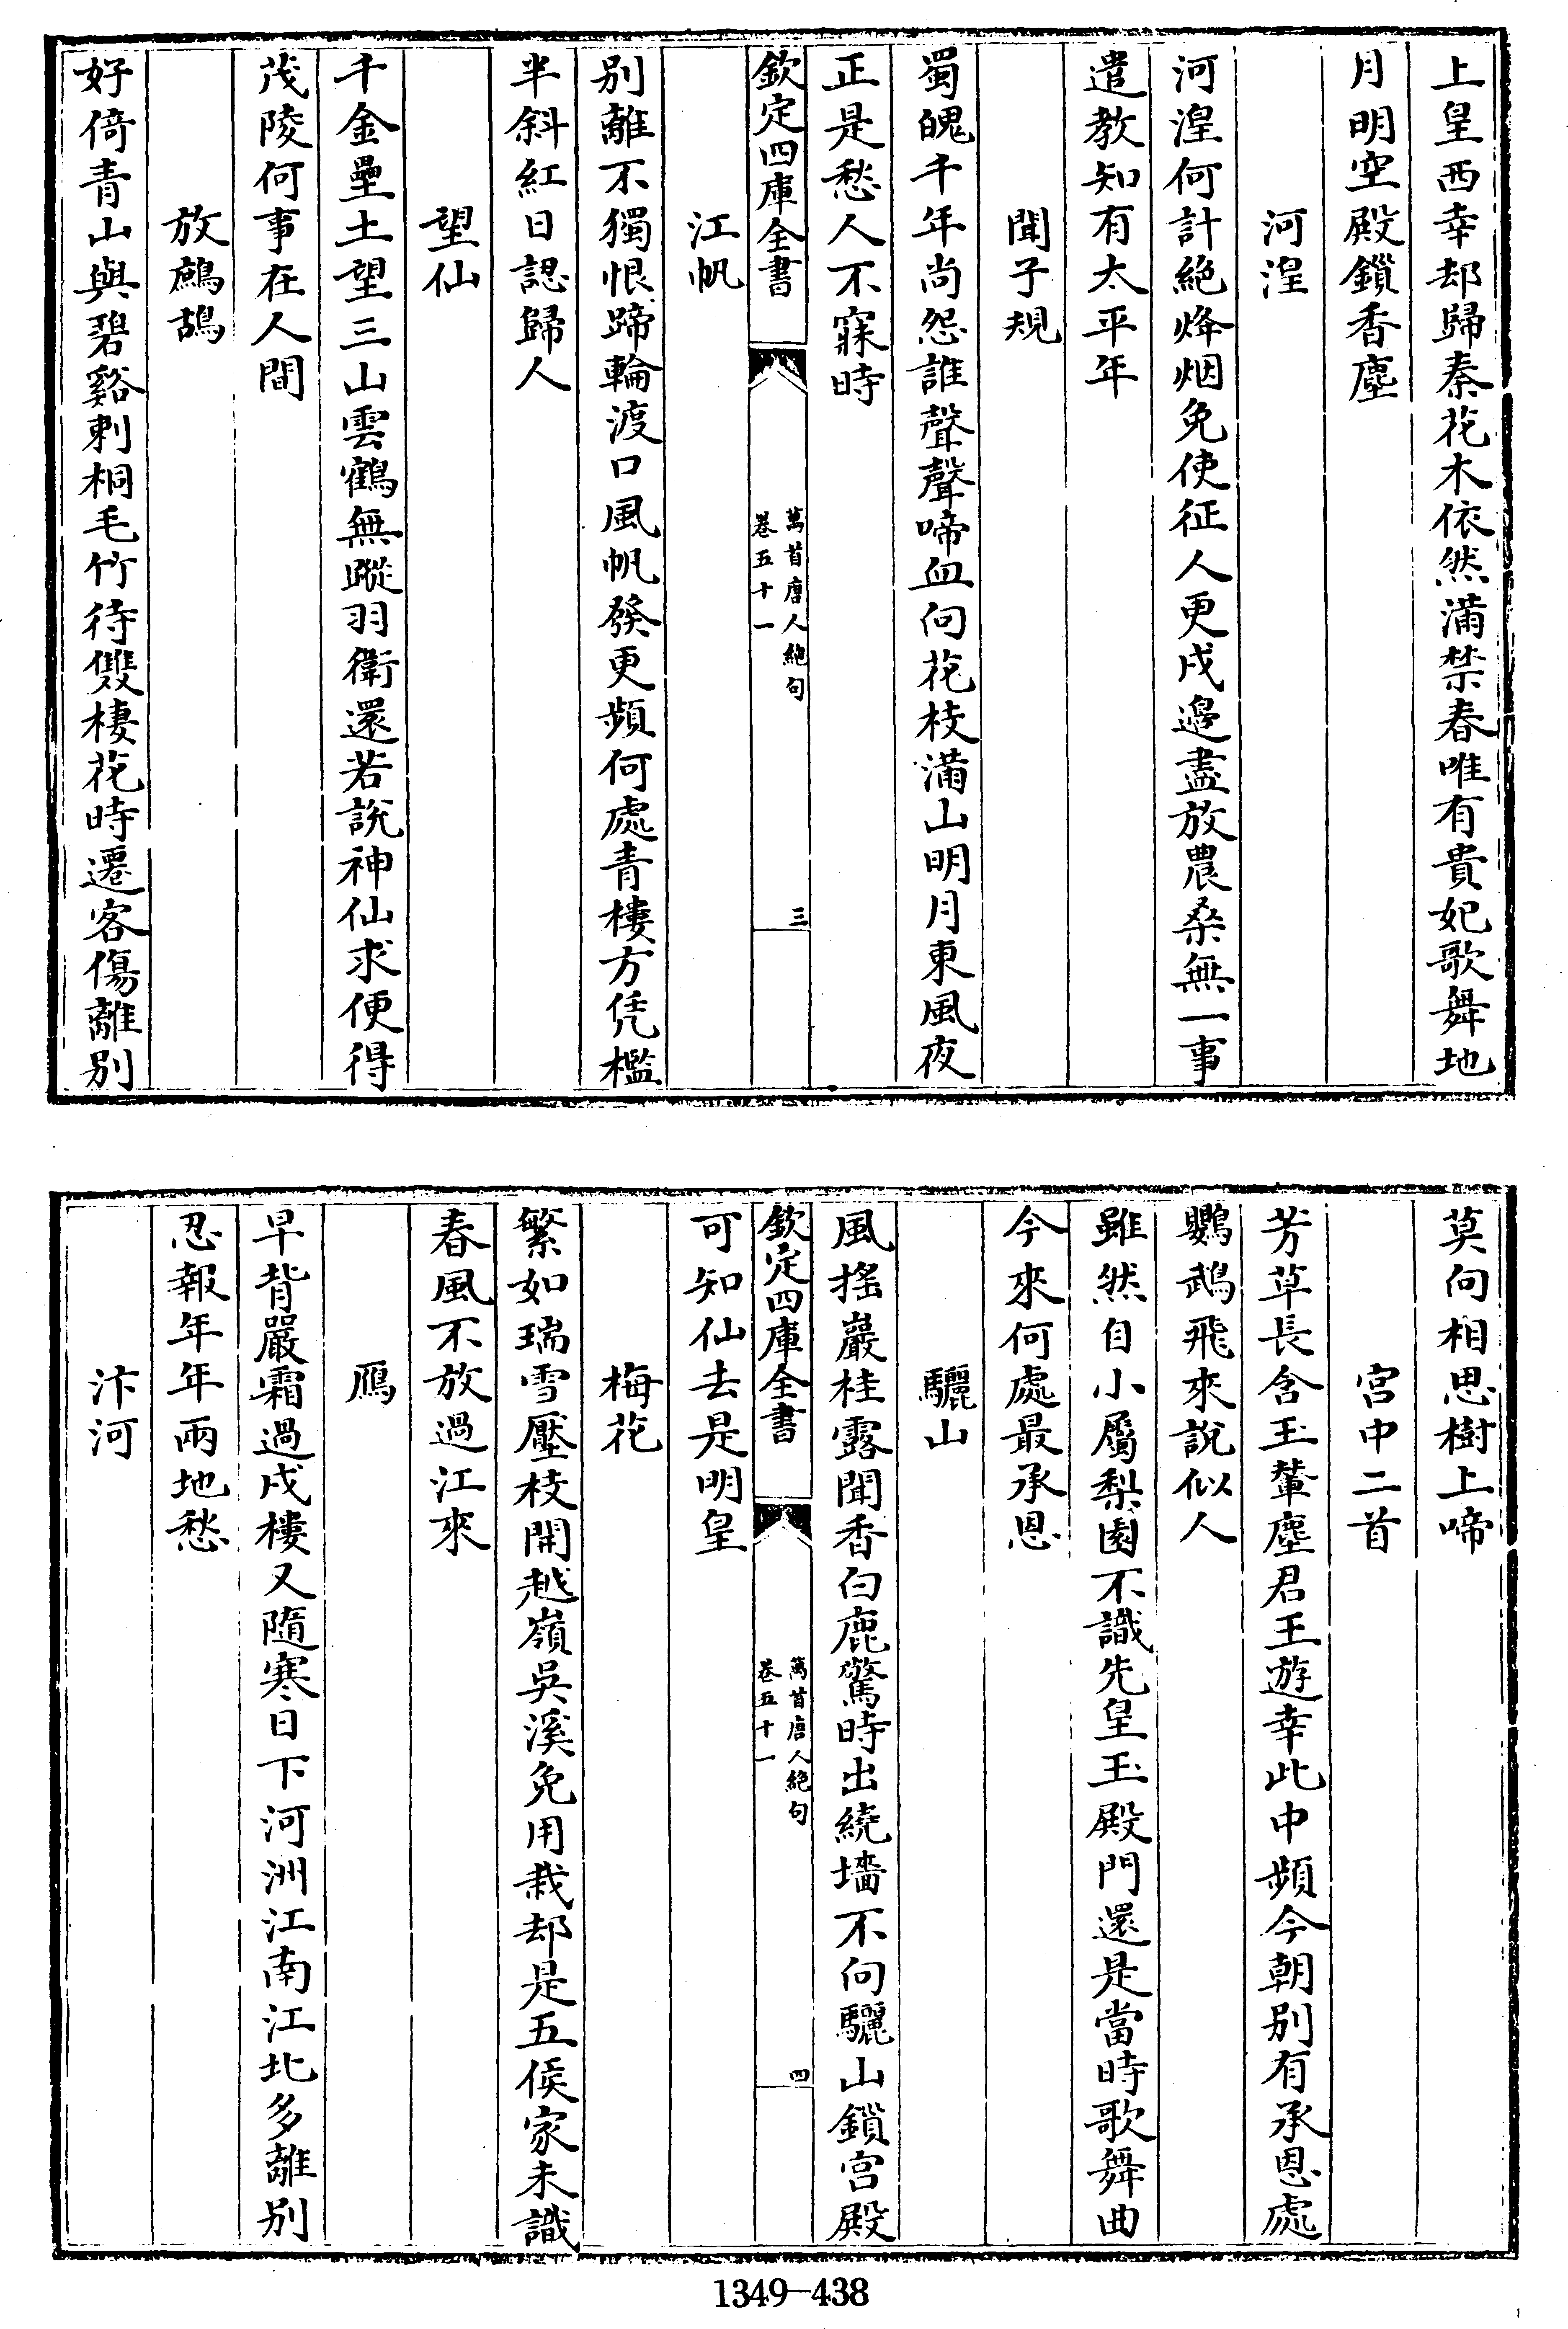 上皇西幸却歸秦花木依然滿禁春唯有貴妃歌舞地
月明空殿鎖香塵
河湟
河湟何計絶烽烟免使征人更戍邊盡放農桑無一事
遣教知有太平年
聞子規
蜀魄千年尚怨誰聲聲啼血向花枝滿山明月東風夜
正是愁人不寐時
欽定四庫全書
萬首唐人絶句
卷五十一
三
江帆
别離不獨恨蹄輪渡口風帆發更頻何處青樓方凭檻
半斜紅日認歸人
望仙
千金壘土望三山雲鶴無蹤羽衛還若說神仙求便得
茂陵何事在人間
放鷓鴣
好倚青山與碧谿刺桐毛竹待雙棲花時遷客傷離别
莫向相思樹上啼
宫中二首
芳草長含玉輦塵君王遊幸此中頻今朝别有承恩處
鸚鵡飛來說似人
雖然自小屬梨園不識先皇玉殿門還是當時歌舞曲
今來何處最承恩
驪山
風摇巖桂露聞香白鹿驚時出繞墻不向驪山鎖宫殿
欽定四庫全書
萬首唐人絶句
卷五十一
四
可知仙去是明皇
梅花
繁如瑞雪壓枝開越嶺吳溪免用栽却是五侯家未識
春風不放過江來
鴈
早背嚴霜過戍樓又隨寒日下河洲江南江北多離别
忍報年年兩地愁
汴河
1349-438